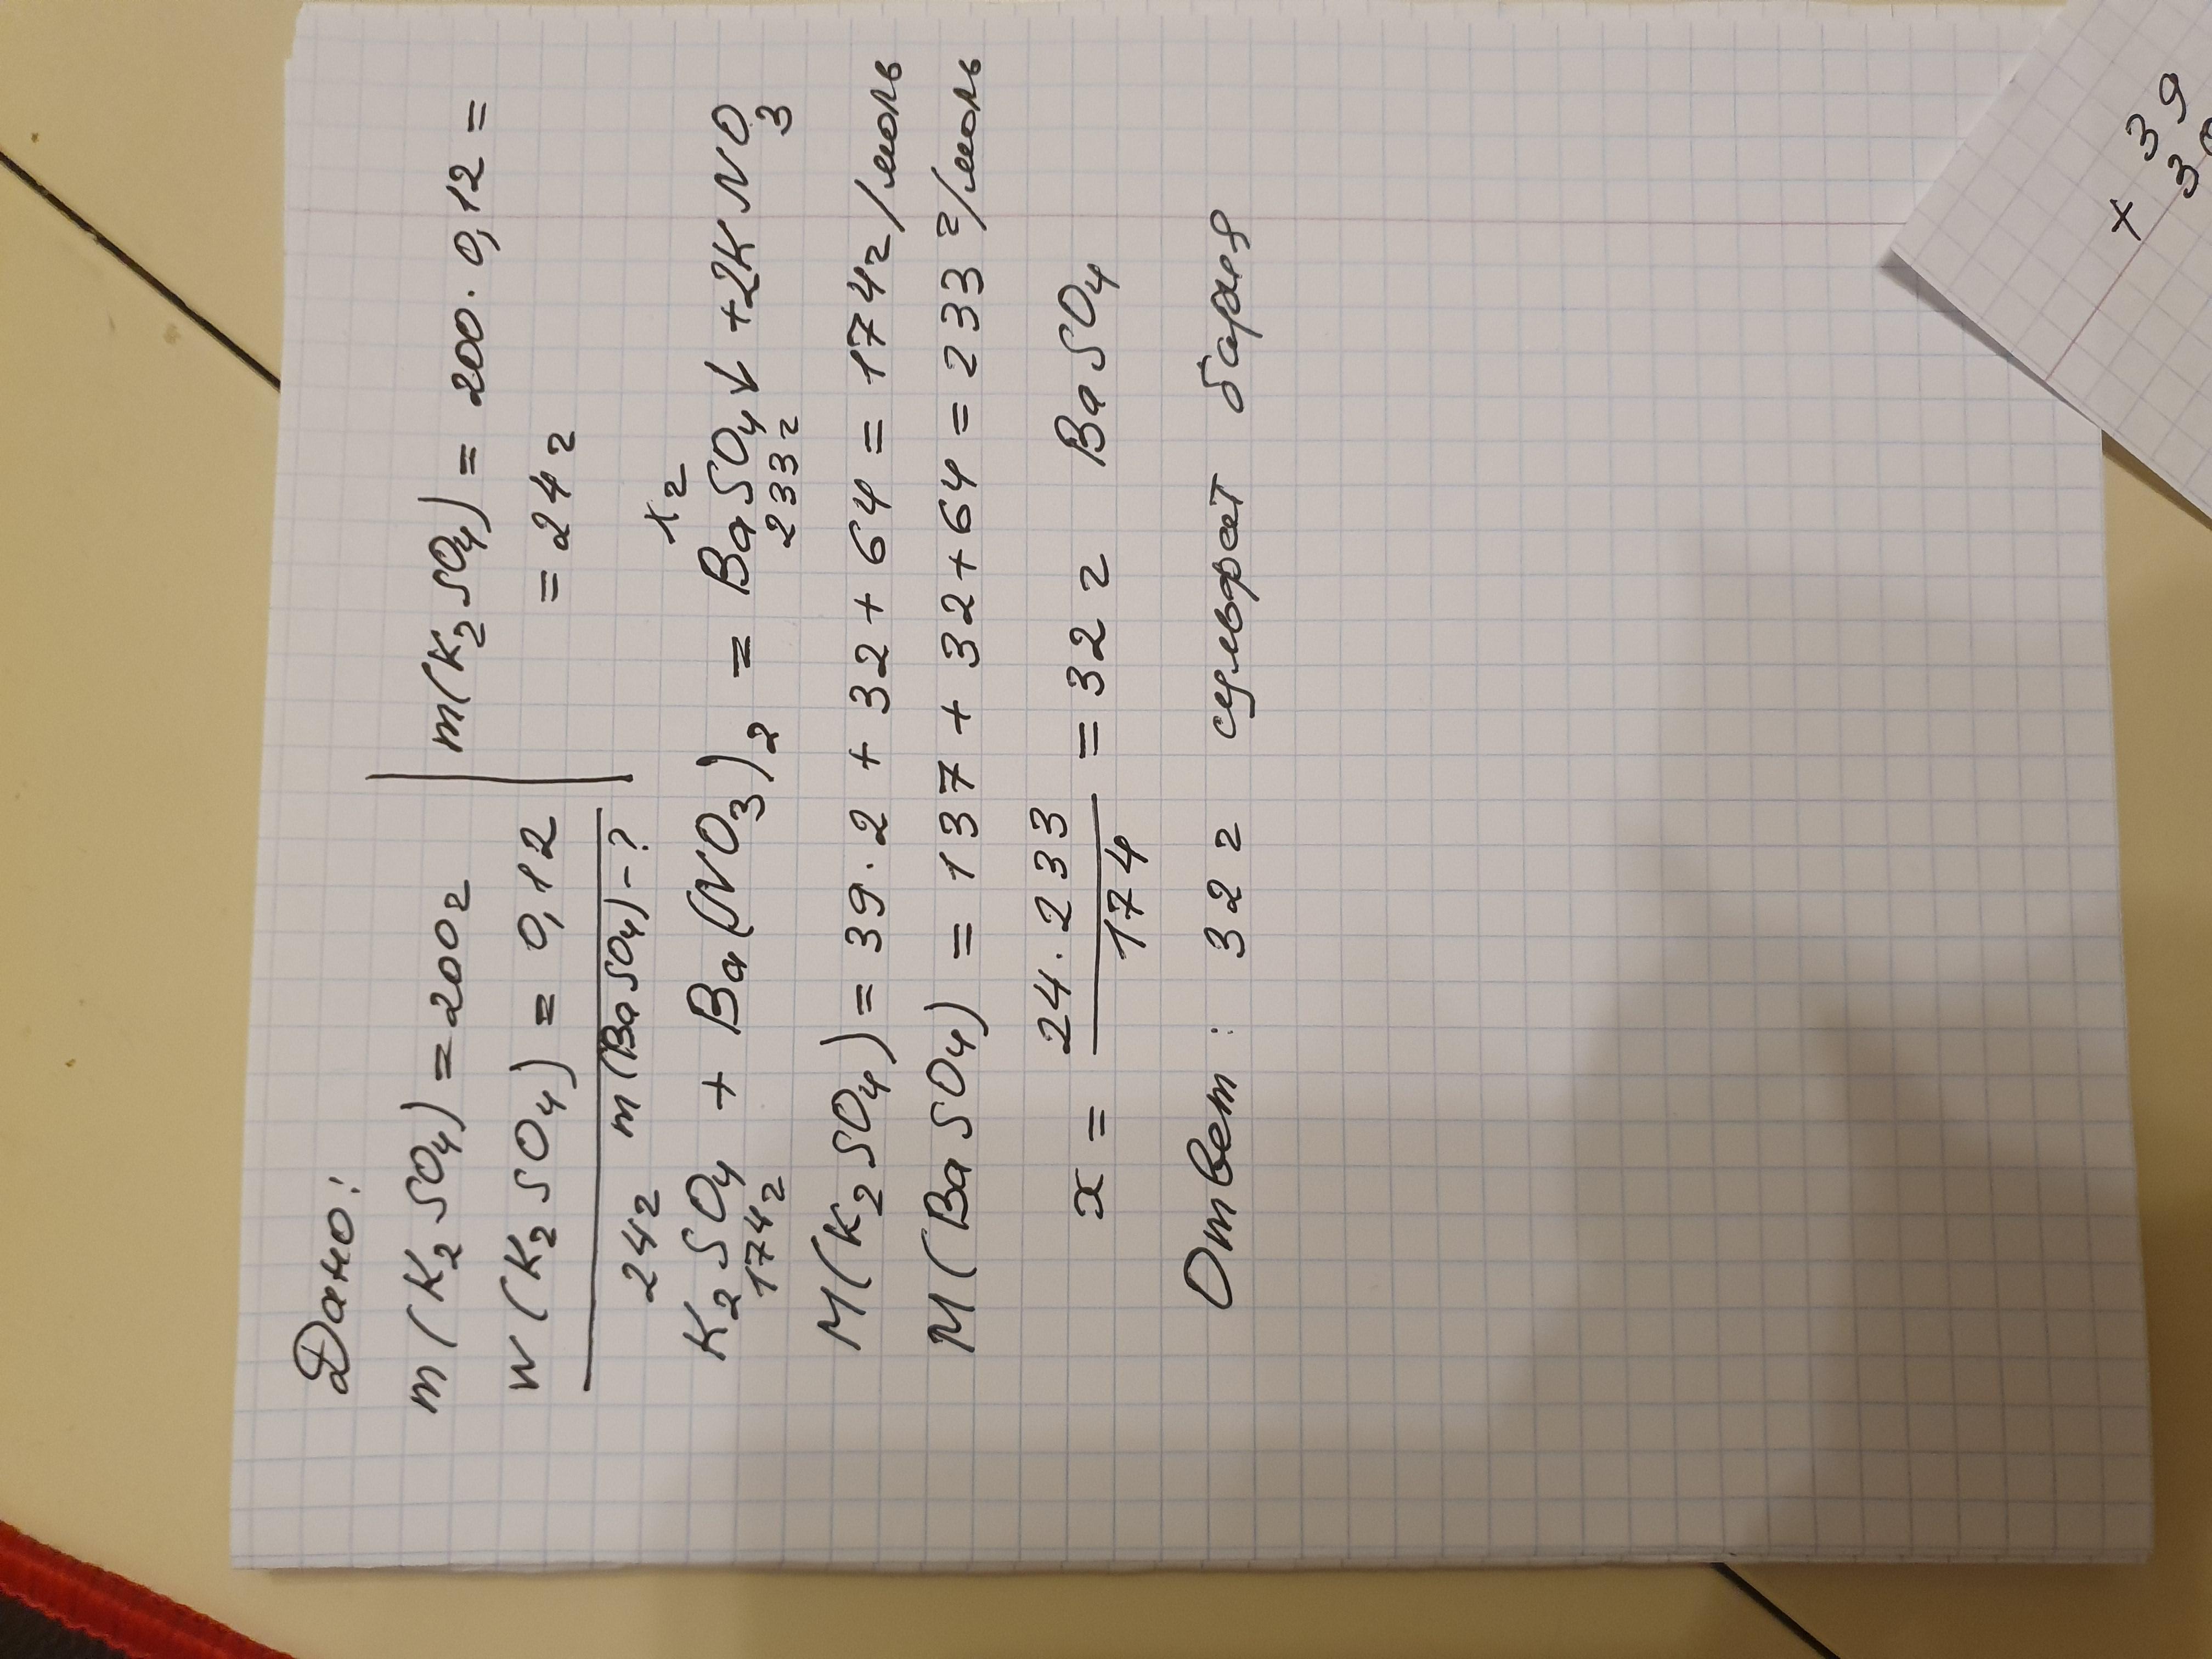 Дано:
m(K2SO4) = 200г
m(K2SO4) = 200 · 0,12 =
w(K2SO4) = 0,12
= 24г
m(BaSO4) - ?
24г
xг
K2SO4 + Ba(NO3)2 = BaSO4↓ + 2KNO3
174г
233г
M(K2SO4) = 39 · 2 + 32 + 64 = 174г/моль
M(BaSO4) = 137 + 32 + 64 = 233 г/моль
24 · 233
x = ——— = 32 г BaSO4
174
Ответ: 32 г сульфат бария
+ 39